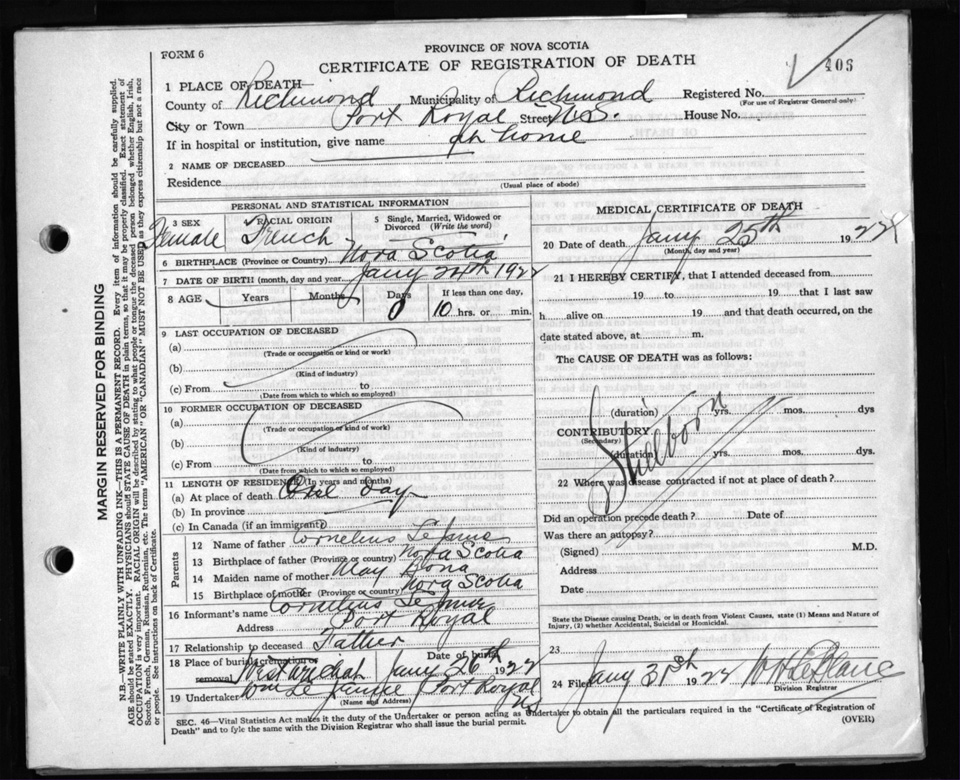 PROVINCE OF NOVA SCOTIA
FORM 6
CERTIFICATE OF REGISTRATION OF DEATH
408
1 PLACE OF DEATH
County of Richmond Municipality of Richmond Registered No.
(For use of Registrar General only)
City or Town Port Royal Street N.S. House No.
If in hospital or institution, give name at home
2 NAME OF DECEASED
Residence
(Usual place of abode)
PERSONAL AND STATISTICAL INFORMATION
3 SEX Female
RACIAL ORIGIN French
5 Single, Married, Widowed or Divorced (Write the word)
6 BIRTHPLACE (Province or Country) Nova Scotia
7 DATE OF BIRTH (month, day and year) Jany 24th 1922
8 AGE Years Months Days 0 If less than one day, 10 hrs. or min.
9 LAST OCCUPATION OF DECEASED
(a)
(Trade or occupation or kind of work)
(b)
(Kind of industry)
(c) From to
(Date from which to which so employed)
10 FORMER OCCUPATION OF DECEASED
(a)
(Trade or occupation or kind of work)
(b)
(Kind of industry)
(c) From to
(Date from which to which so employed)
11 LENGTH OF RESIDENCE (In years and months)
(a) At place of death One day
(b) In province
(c) In Canada (if an immigrant)
Parents
12 Name of father Cornelius
13 Birthplace of father (Province or country) Nova Scotia
14 Maiden name of mother May
15 Birthplace of mother (Province or country) Nova Scotia
16 Informant's name Cornelius
Address Port Royal
17 Relationship to deceased Father
18 Place of burial, cremation or removal West Arichat Date of burial Jany 26th 1922
19 Undertaker Port Royal NS
(Name and Address)
MEDICAL CERTIFICATE OF DEATH
20 Date of death Jany 25th 1922
(Month, day and year)
21 I HEREBY CERTIFY, that I attended deceased from
19 to 19 that I last saw
h alive on 19 and that death occurred, on the
date stated above, at m.
The CAUSE OF DEATH was as follows:
Stillborn
(duration) yrs. mos. dys
CONTRIBUTORY
(Secondary)
(duration) yrs. mos. dys.
22 Where was disease contracted if not at place of death?
Did an operation precede death? Date of
Was there an autopsy?
(Signed) M.D.
Address
Date
State the Disease causing Death, or in death from Violent Causes, state (1) Means and Nature of
Injury, (2) whether Accidental, Suicidal or Homicidal.
23
24 Filed Jany 31st 1922 LeBlanc
Division Registrar
SEC. 46—Vital Statistics Act makes it the duty of the Undertaker or person acting as Undertaker to obtain all the particulars required in the "Certificate of Registration of
Death" and to fyle the same with the Division Registrar who shall issue the burial permit.
(OVER)
MARGIN RESERVED FOR BINDING
N.B.—WRITE PLAINLY WITH UNFADING INK—THIS IS A PERMANENT RECORD. Every item of information should be carefully supplied.
AGE should be stated EXACTLY. PHYSICIANS should STATE CAUSE OF DEATH in plain terms, so that it may be properly classified. Exact statement of
OCCUPATION is very important. RACIAL ORIGIN will be described by stating to what people or tongue the deceased person belonged whether English, Irish,
Scotch, French, German, Russian, Ruthenian, etc. The terms "AMERICAN" OR "CANADIAN" MUST NOT BE USED as they express citizenship but not a race
or people. See instructions on back of Certificate.